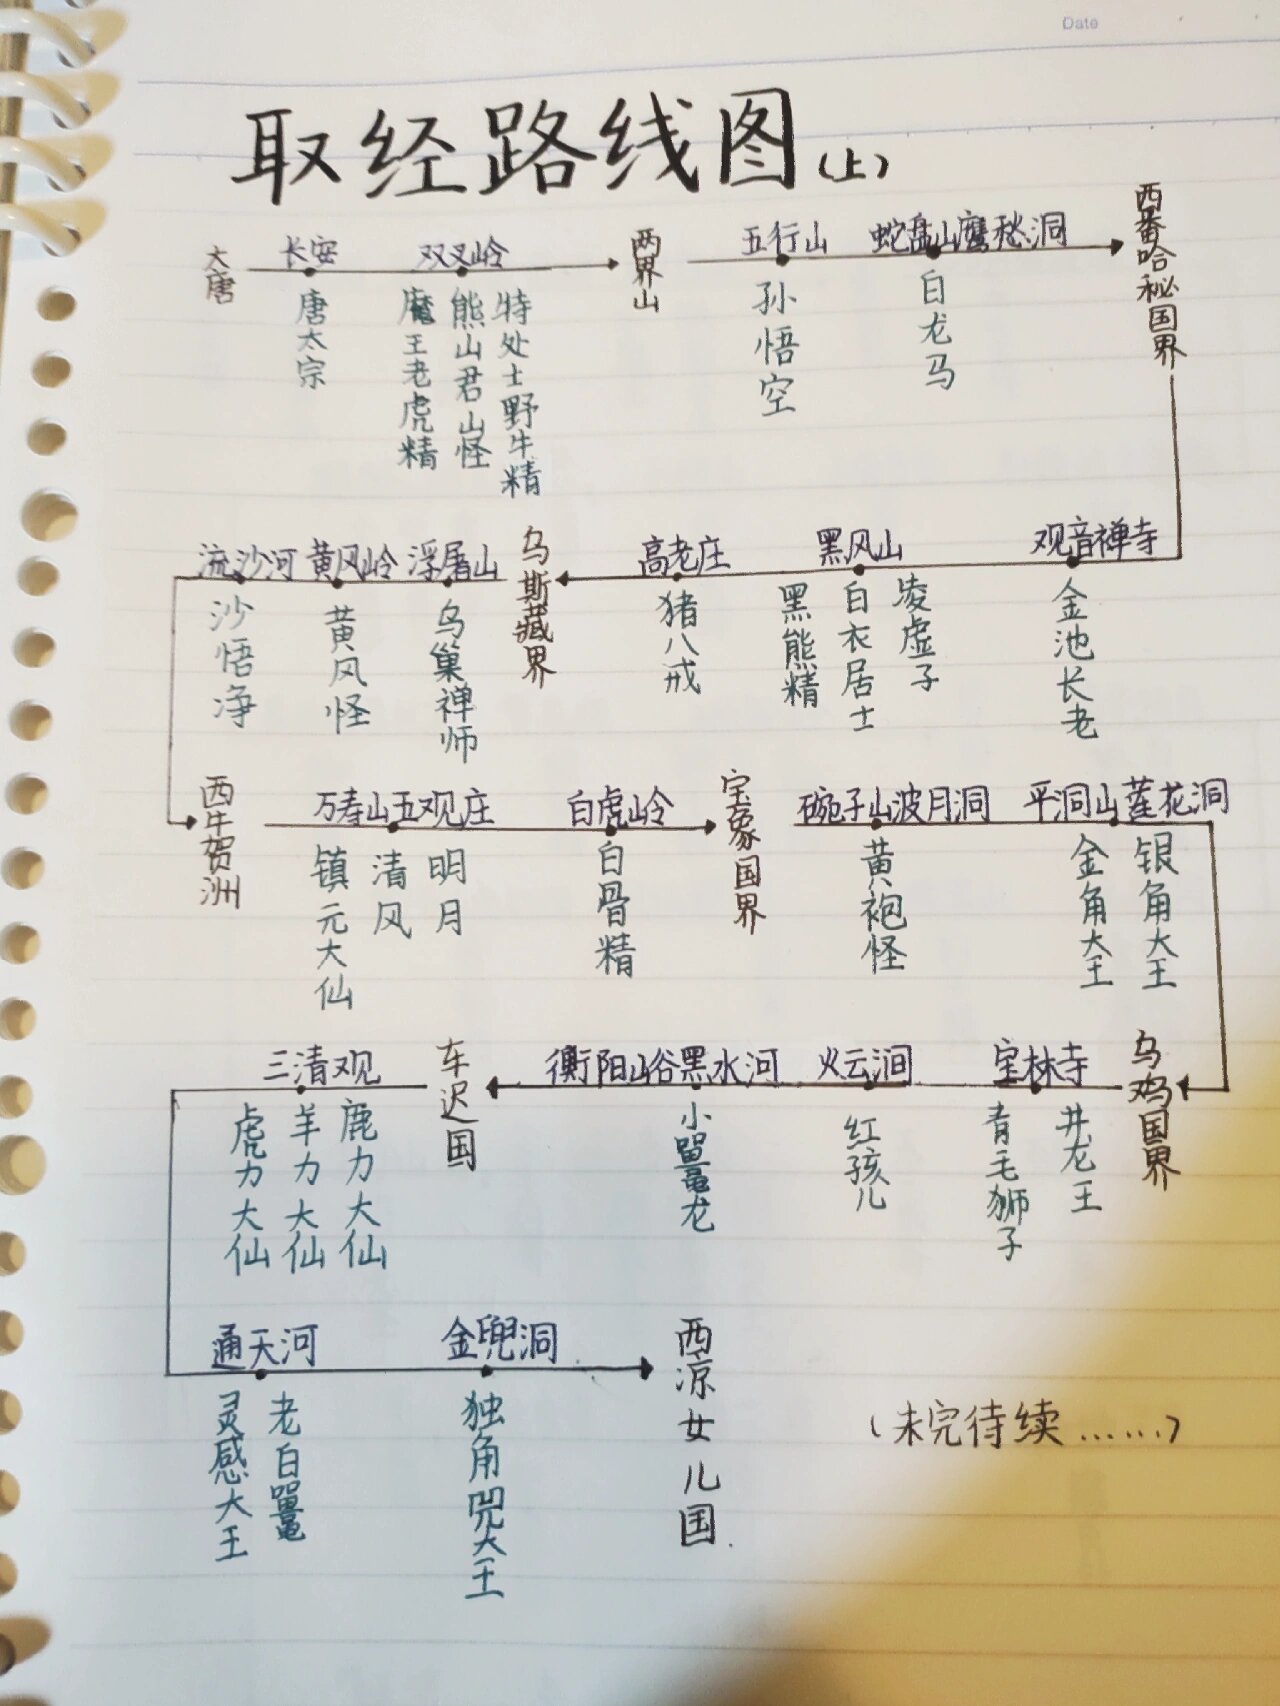 Date
取经路线图(上)
大唐
长安
唐太宗
双叉岭
魔王老虎精
熊山君山怪
特处士野牛精
两界山
五行山
孙悟空
蛇盘山鹰愁洞
白龙马
西番哈秘国界
观音禅寺
金池长老
黑风山
凌虚子
白衣居士
黑熊精
高老庄
猪八戒
乌斯藏界
浮屠山
乌巢禅师
黄风岭
黄风怪
流沙河
沙悟净
西牛贺洲
万寿山五观庄
镇元大仙
清风
明月
白虎岭
白骨精
宝象国界
碗子山波月洞
黄袍怪
平洞山莲花洞
金角大王
银角大王
乌鸡国界
宝林寺
井龙王
青毛狮子
火云涧
红孩儿
衡阳峪黑水河
小鼍龙
车迟国
三清观
鹿力大仙
羊力大仙
虎力大仙
通天河
灵感大王
老白鼍
金兜洞
独角兕大王
西凉女儿国
(未完待续……)